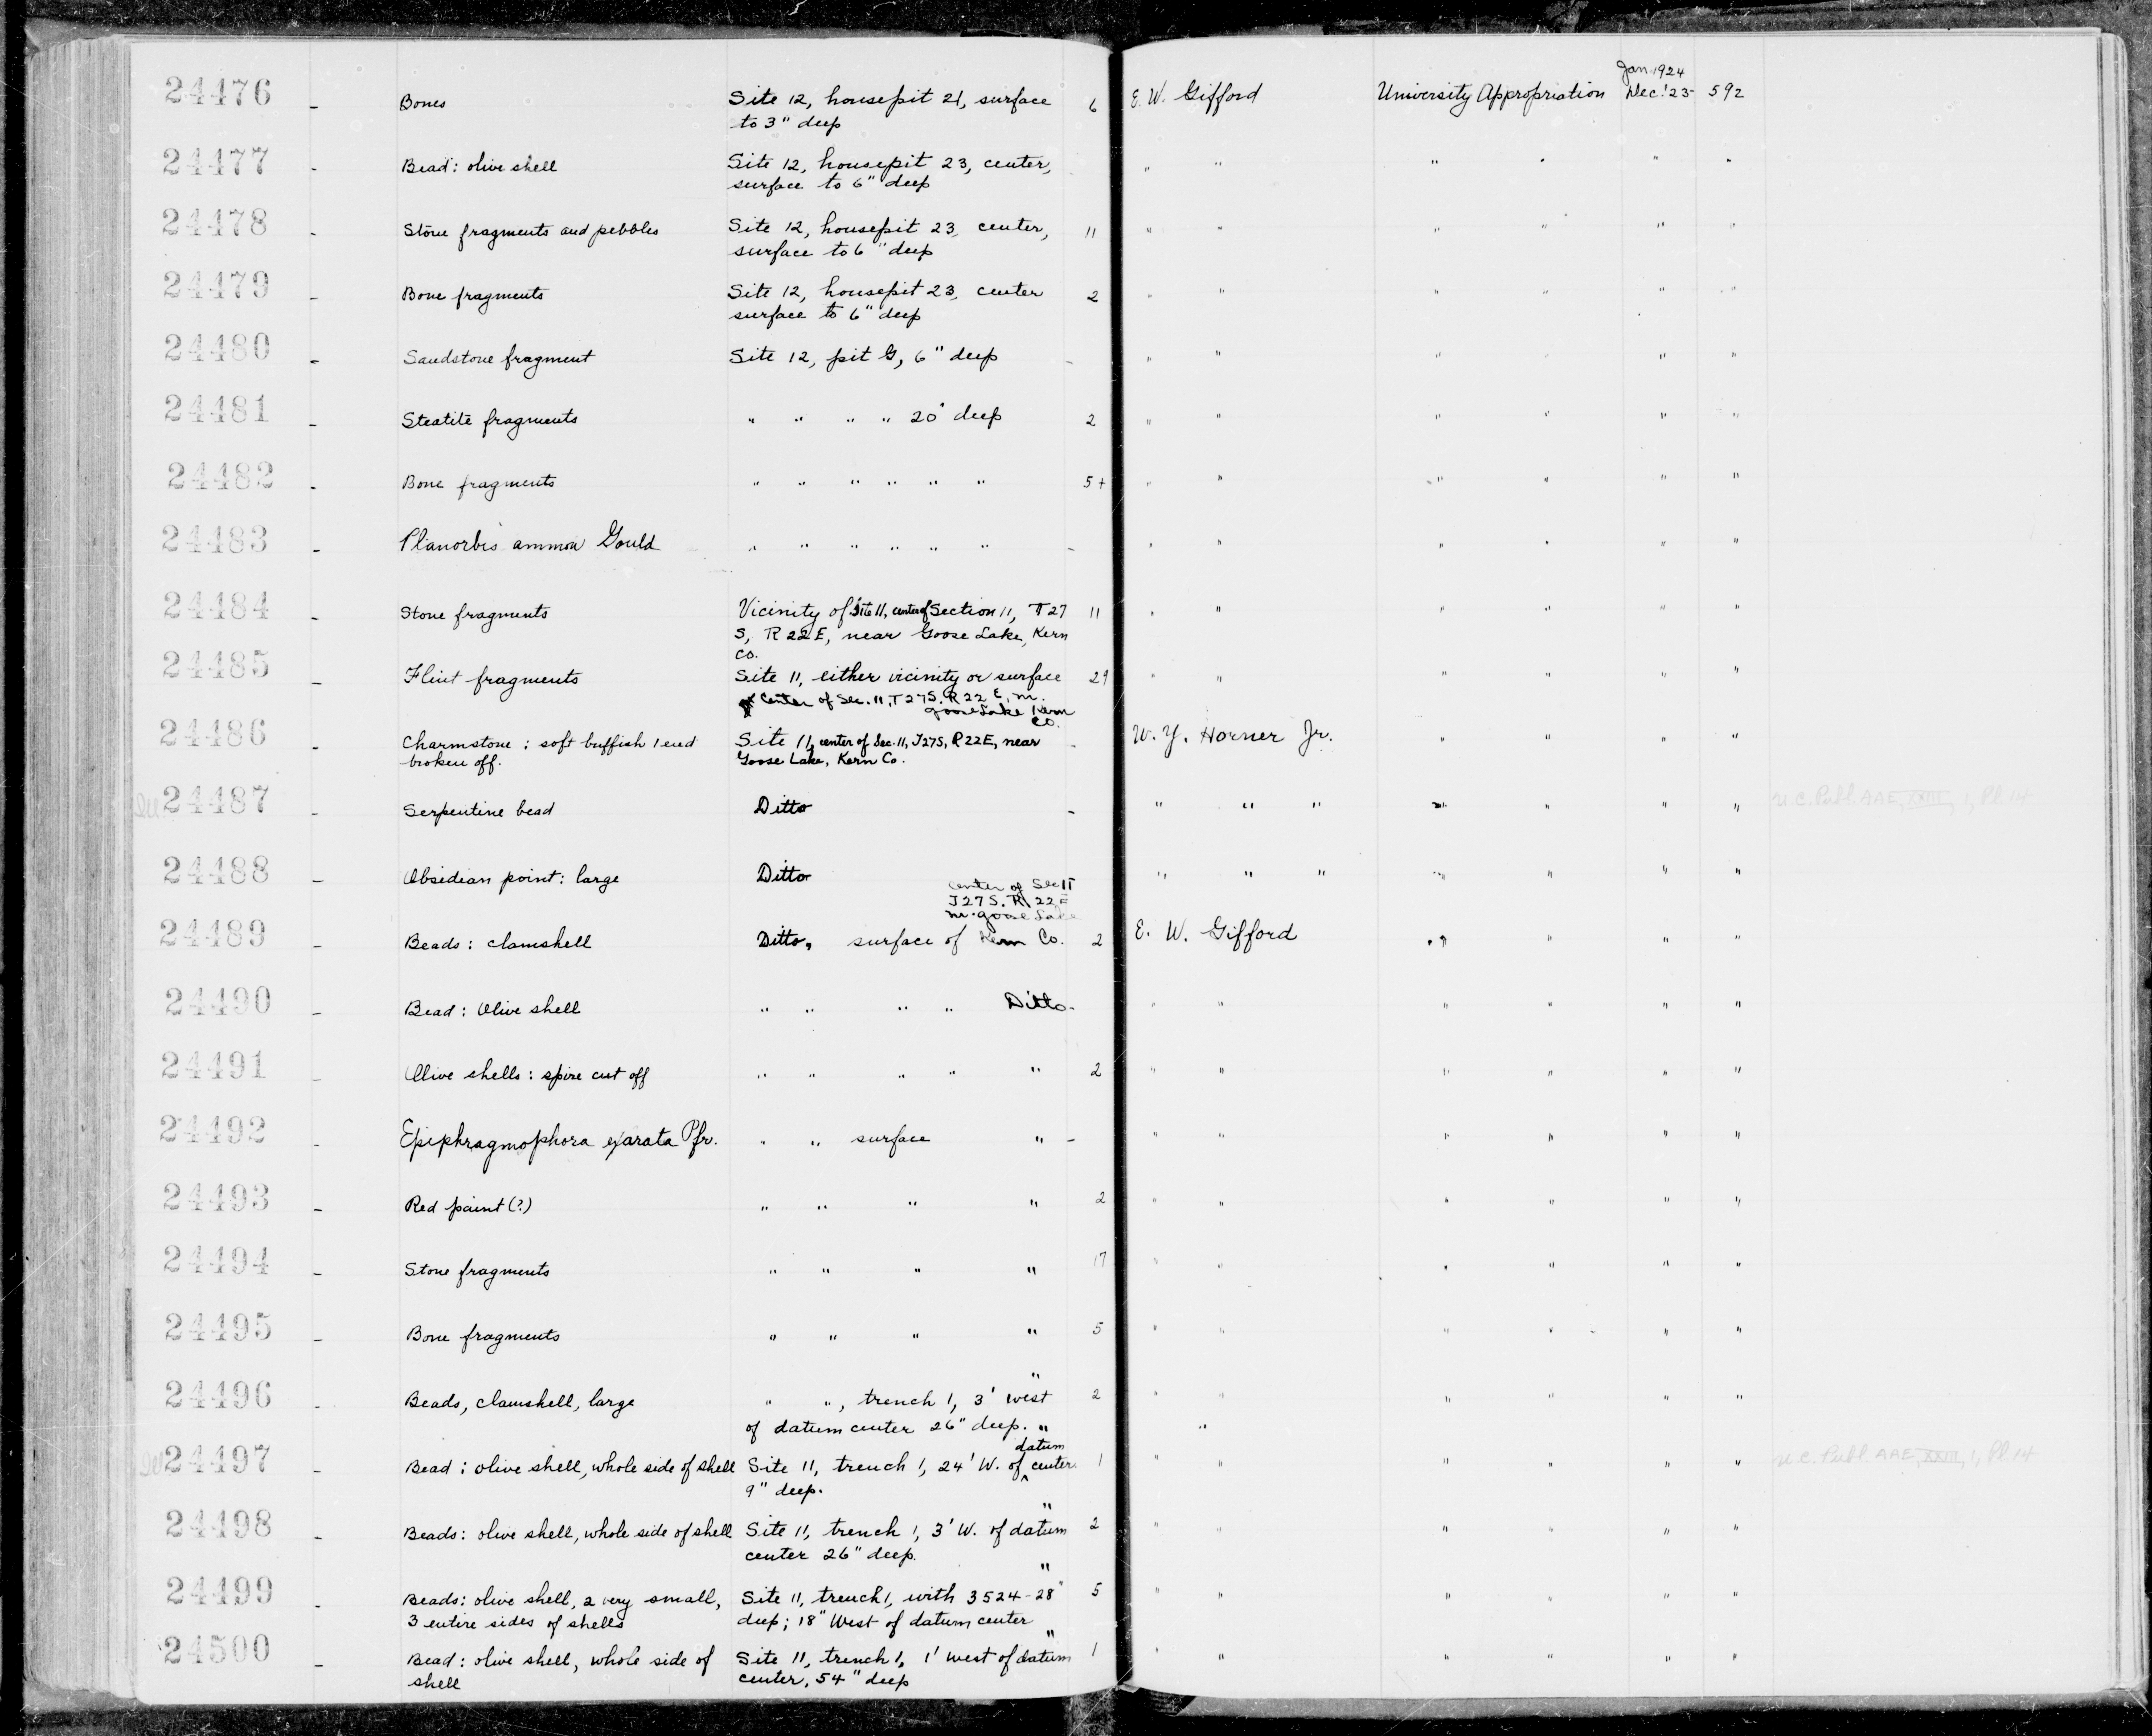 Jan. 1924
24476 - Bones Site 12, housepit 21, surface 6 E. W. Gifford University Appropriation Dec. '23 - 592
to 3" deep
24477 - Bead: olive shell Site 12, housepit 23, center, " " " " " "
surface to 6" deep
24478 - Stone fragments and pebbles Site 12, housepit 23, center, 11 " " " " " "
surface to 6" deep
24479 - Bone fragments Site 12, housepit 23, center 2 " " " " " "
surface to 6" deep
24480 - Sandstone fragment Site 12, pit G, 6" deep - " " " " " "
24481 - Steatite fragments " " " " 20" deep 2 " " " " " "
24482 - Bone fragments " " " " " " 5+ " " " " " "
24483 - Planorbis ammon Gould " " " " " " - " " " " " "
24484 - Stone fragments Vicinity of Site 11, center of Section 11, T 27 11 " " " " " "
S, R 22 E, near Goose Lake, Kern
Co.
24485 - Flint fragments Site 11, either vicinity or surface 29 " " " " " "
Center of Sec. 11, T 27 S. R 22 E, nr.
Goose Lake Kern
Co.
24486 - Charmstone: soft buffish 1 end Site 11, center of Sec. 11, T27S, R22E, near - W. Y. Horner Jr. " " " "
broken off. Goose Lake, Kern Co.
24487 - Serpentine bead Ditto - " " " " " " " U.C. Publ. AAE, XXIII, 1, Pl. 14
24488 - Obsidian point: large Ditto " " " " " " "
center of Sec 11
T27S. R 22 E
nr. Goose Lake
24489 - Beads: clamshell Ditto, surface of Kern Co. 2 E. W. Gifford " " " "
24490 - Bead: Olive shell " " " " Ditto - " " " " " "
24491 - Olive shells: spire cut off " " " " " 2 " " " " " "
24492 - Epiphragmophora exarata Pfr. " " surface " - " " " " " "
24493 - Red paint (?) " " " " 2 " " " " " "
24494 - Stone fragments " " " " 17 " " " " " "
24495 - Bone fragments " " " " 5 " " " " " "
"
24496 - Beads, clamshell, large " ", trench 1, 3' west 2 " " " " " "
of datum center 26" deep. " "
datum
24497 - Bead: olive shell, whole side of shell Site 11, trench 1, 24' W. of ^ center. 1 " " " " " " U.C. Publ. AAE, XXIII, 1, Pl. 14
9" deep.
"
24498 - Beads: olive shell, whole side of shell Site 11, trench 1, 3' W. of datum 2 " " " " " "
center 26" deep.
"
24499 - Beads: olive shell, 2 very small, Site 11, trench 1, with 3524 - 28" 5 " " " " " "
3 entire sides of shells deep; 18" West of datum center
"
24500 - Bead: olive shell, whole side of Site 11, trench 1, 1' west of datum 1 " " " " " "
shell center, 54" deep